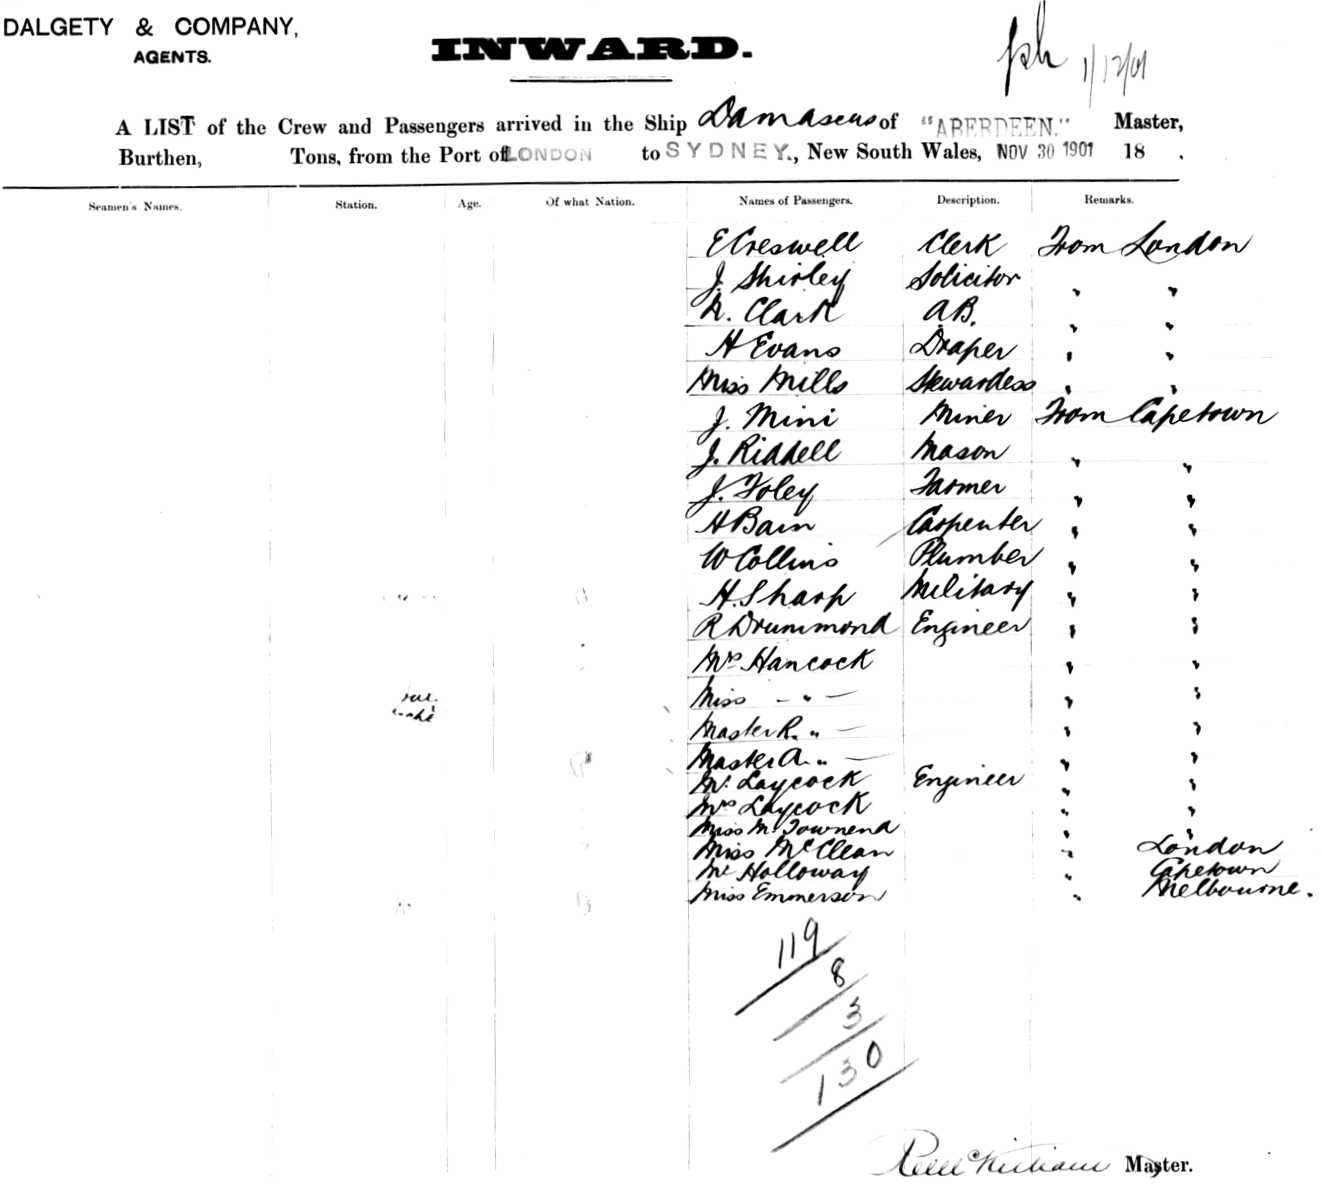 DALGETY & COMPANY,
AGENTS.
INWARD.
1/12/01
A LIST of the Crew and Passengers arrived in the Ship Damascus of "ABERDEEN." Master,
Burthen, Tons, from the Port of LONDON to SYDNEY., New South Wales, NOV 30 1901 18 .
Seamen's Names. Station. Age. Of what Nation. Names of Passengers. Description. Remarks.
E Creswell Clerk From London
J. Shirley Solicitor " "
Clark A.B. " "
H Evans Draper " "
Miss Mills Stewardess " "
J. Mini Miner From Capetown
J. Riddell Mason " "
J. Foley Farmer " "
H Bain Carpenter " "
W Collins Plumber " "
H. Sharp Military " "
R Drummond Engineer " "
Mrs Hancock " "
Miss - " - " "
Master R. " - " "
Master A. " - " "
Mr Laycock Engineer " "
Mrs Laycock " "
Miss M. Townend " "
Miss McClean " London
Mr Holloway " Capetown
Miss Emmerson " Melbourne.
119
8
3
130
Master.